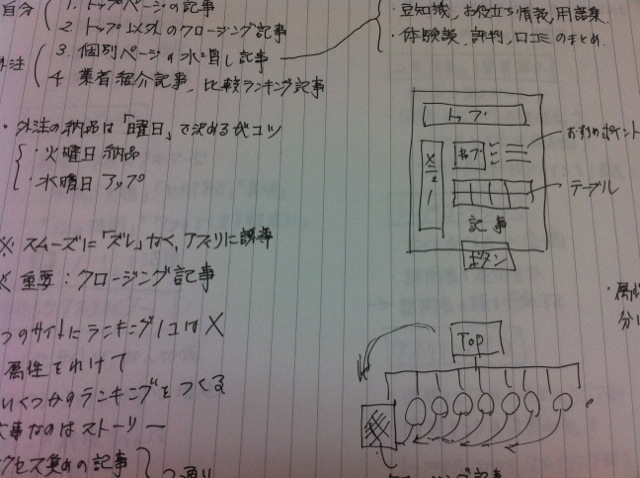 自分
1. トップページの記事
2. トップ以外のクロージング記事
外注
3. 個別ページの水増し記事
4. 業者紹介記事、比較ランキング記事
・豆知識、お役立ち情報、用語集
・体験談、評判、口コミのまとめ
・外注の納品は「曜日」で決めるがコツ
・火曜日納品
・水曜日アップ
※ スムーズに「ズレ」なく、アフィリに誘導
※ 重要：クロージング記事
つのサイトにランキング1コは×
属性をわけて
いくつかのランキングをつくる
大事なのはストーリー
クセス集めの記事
つ通り
トップ
メニュー
キャプ
おすすめポイント
テーブル
記事
ボタン
・属性
分け
TOP
クロージング記事